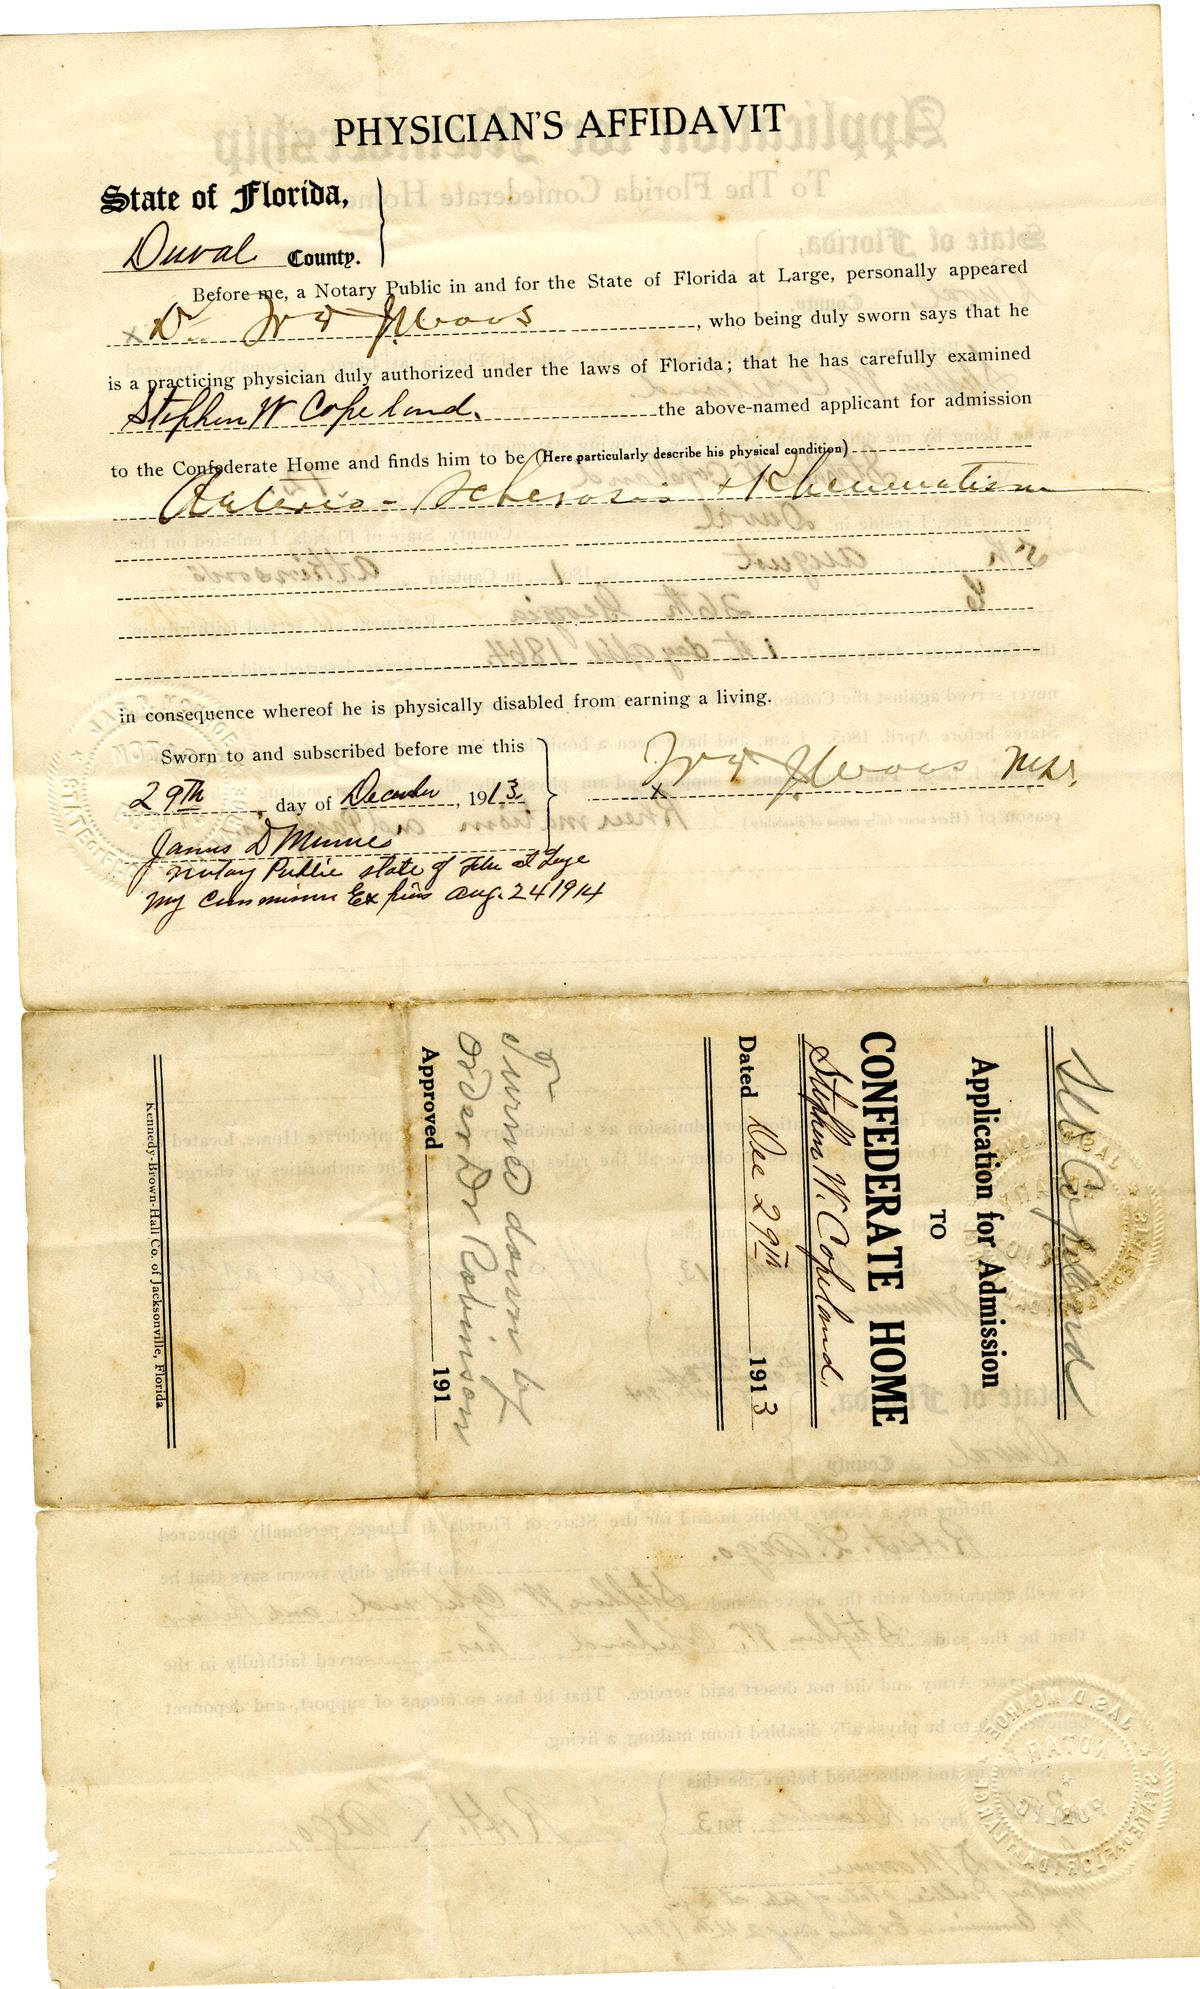 PHYSICIAN'S AFFIDAVIT
State of Florida,
Duval County.
Before me, a Notary Public in and for the State of Florida at Large, personally appeared
x Dr , who being duly sworn says that he
is a practicing physician duly authorized under the laws of Florida; that he has carefully examined
Stephen W Copeland. the above-named applicant for admission
to the Confederate Home and finds him to be (Here particularly describe his physical condition)
Arterio-Scherosis + Rheumatism
in consequence whereof he is physically disabled from earning a living.
Sworn to and subscribed before me this
29th day of December, 1913
x M.D.
James D Monroe
Notary Public state of Fla at Large
My Commission Expires Aug. 24 1914
SW Copeland
Application for Admission
TO
CONFEDERATE HOME
Stephen W. Copeland.
Dated Dec 29th 1913
Turned down by
order Dr Robinson
Approved 191
Kennedy-Brown-Hall Co. of Jacksonville, Florida
JAS. D. MONROE
NOTARY
PUBLIC
STATE OF FLORIDA AT LARGE